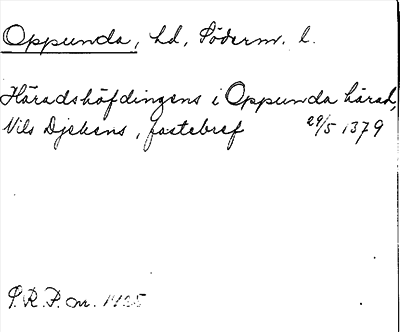 Oppunda, hd, Söderm. l.
Häradshöfdingens i Oppunda härad,
Nils Djekens, fastebref 29/5 1379
P.R.P. nr. 1425